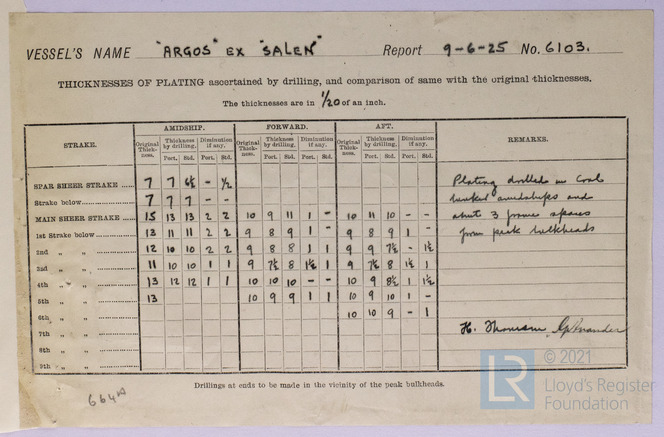 VESSEL'S NAME "ARGOS" EX "SALEN" Report 9-6-25 No. 6103.
THICKNESSES OF PLATING ascertained by drilling, and comparison of same with the original thicknesses.
The thicknesses are in 1/20 of an inch.
STRAKE. AMIDSHIP. FORWARD. AFT. REMARKS.
Original Thickness. Thickness by drilling. Diminution if any. Original Thickness. Thickness by drilling. Diminution if any. Original Thickness. Thickness by drilling. Diminution if any.
Port. Std. Port. Std. Port. Std. Port. Std. Port. Std. Port. Std.
SPAR SHEER STRAKE ...... 7 7 6½ - ½ Plating drilled in Coal
Strake below ...... 7 7 7 - - bunker amidships and
MAIN SHEER STRAKE ...... 15 13 13 2 2 10 9 11 1 - 10 11 10 - - about 3 frame spaces
1st Strake below ...... 13 11 11 2 2 9 8 9 1 9 8 9 1 - from peak bulkheads
2nd " " ...... 12 10 10 2 2 9 8 8 1 1 9 9 7½ - 1½
3rd " " ...... 11 10 10 1 1 9 7½ 8 1½ 1 9 7½ 8 1½ 1
4th " " ...... 13 12 12 1 1 10 10 10 - - 10 9 8½ 1 1½
5th " " ...... 13 10 9 9 1 1 10 9 10 1 -
6th " " ...... 10 10 9 - 1
7th " " ...... H. Thomson
8th " " ......
9th " " ......
Drillings at ends to be made in the vicinity of the peak bulkheads.
© 2021
LR Lloyd's Register
Foundation